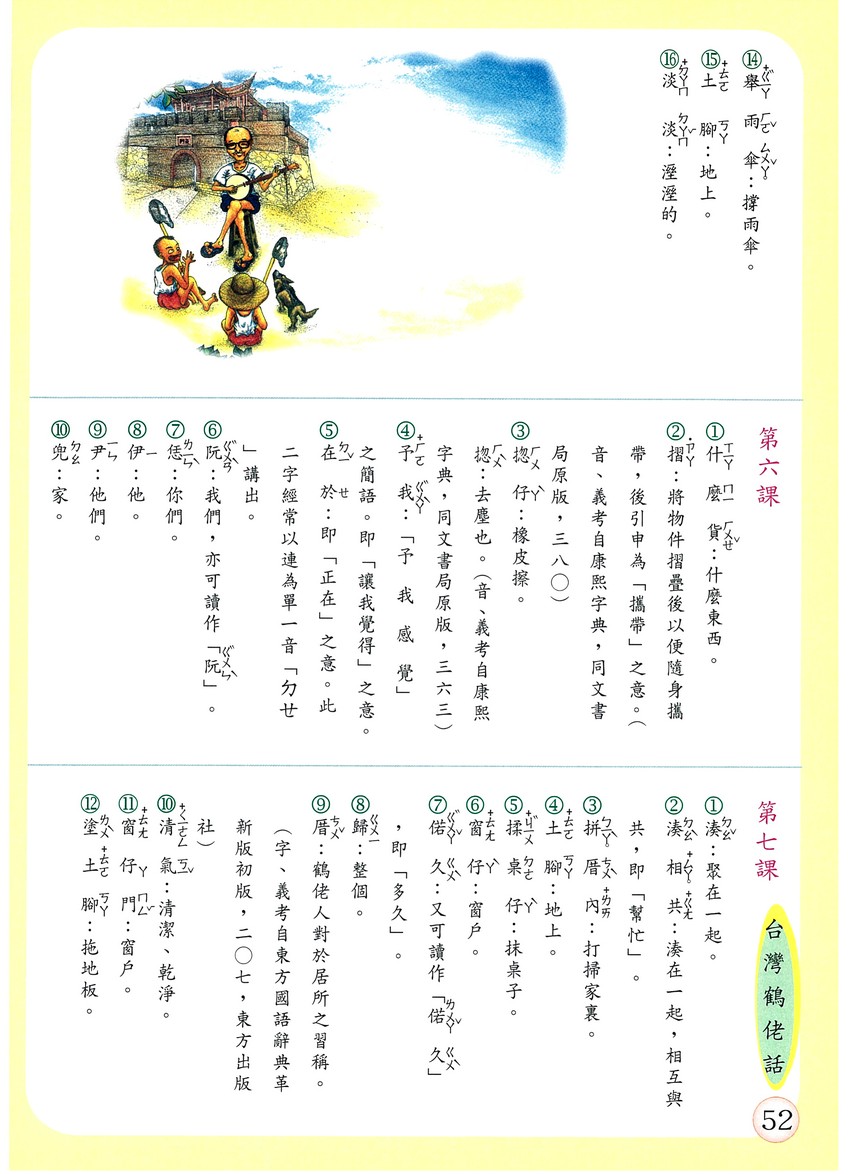 ⑭舉雨傘：撐雨傘。
⑮土腳：地上。
⑯淡淡：溼溼的。
第六課
①什麼貨：什麼東西。
②摺：將物件摺疊後以便隨身攜
帶，後引申為「攜帶」之意。（
音、義考自康熙字典，同文書
局原版，三八〇）
③揔仔：橡皮擦。
揔：去塵也。（音、義考自康熙
字典，同文書局原版，三六三）
④予我：「予我感覺」
之簡語。即「讓我覺得」之意。
⑤在於：即「正在」之意。此
二字經常以連為單一音「ㄉㄝ
」講出。
⑥阮：我們，亦可讀作「阮」。
⑦恁：你們。
⑧伊：他。
⑨尹：他們。
⑩兜：家。
第七課
①湊：聚在一起。
②湊相共：湊在一起，相互與
共，即「幫忙」。
③拼厝內：打掃家裏。
④土腳：地上。
⑤揉桌仔：抹桌子。
⑥窗仔：窗戶。
⑦偌久：又可讀作「偌久」
，即「多久」。
⑧歸：整個。
⑨厝：鶴佬人對於居所之習稱。
（字、義考自東方國語辭典革
新版初版，二〇七，東方出版
社）
⑩清氣：清潔、乾淨。
⑪窗仔門：窗戶。
⑫塗土腳：拖地板。
台灣鶴佬話
52